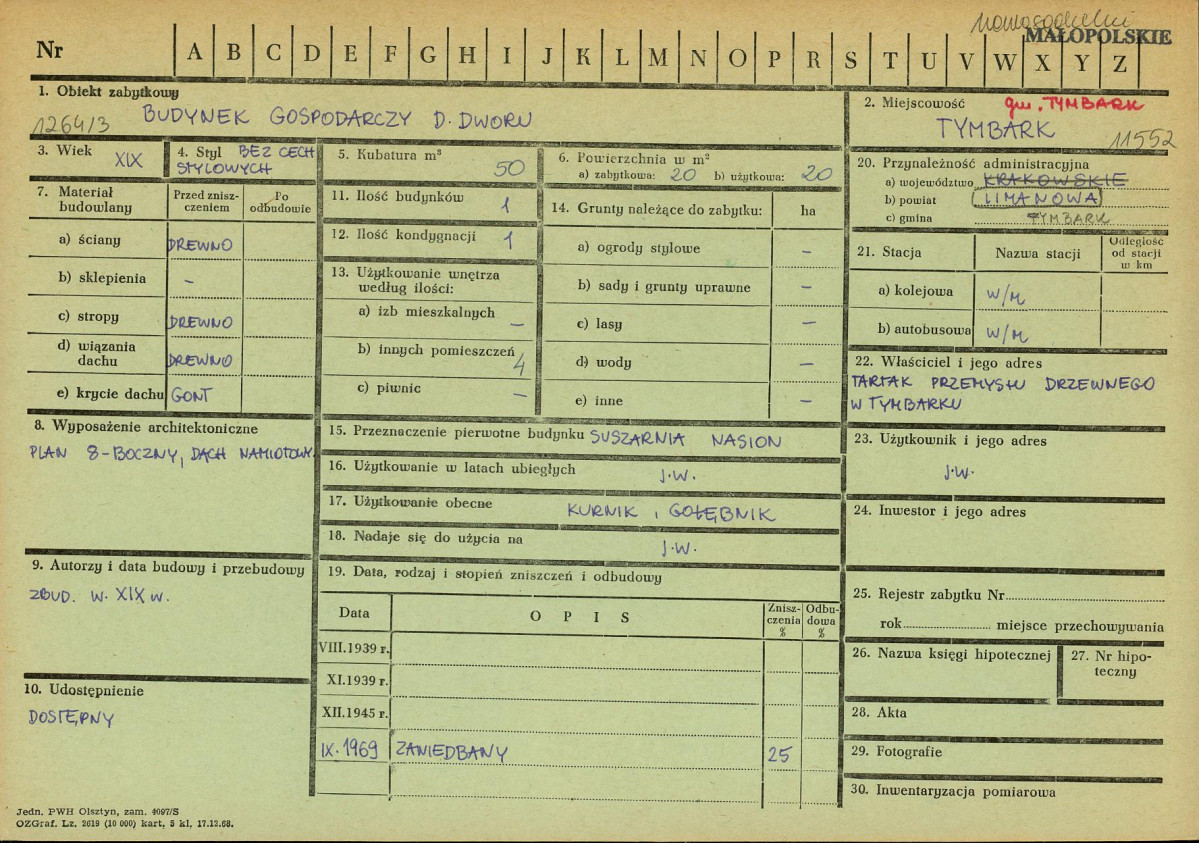 nowosądeckie
MAŁOPOLSKIE
Nr A B C D E F G H I J K L M N O P R S T U V W X Y Z
1. Obiekt zabytkowy
1264/3 BUDYNEK GOSPODARCZY D. DWORU
2. Miejscowość gm. TYMBARK
TYMBARK
11552
3. Wiek XIX
4. Styl BEZ CECH
STYLOWYCH
5. Kubatura m³
50
6. Powierzchnia w m²
a) zabytkowa: 20 b) użytkowa: 20
7. Materiał
budowlany
Przed znisz-
czeniem
Po
odbudowie
a) ściany DREWNO
b) sklepienia –
c) stropy DREWNO
d) wiązania
dachu DREWNO
e) krycie dachu GONT
8. Wyposażenie architektoniczne
PLAN 8-BOCZNY, DACH NAMIOTOWY.
9. Autorzy i data budowy i przebudowy
ZBUD. W. XIX w.
10. Udostępnienie
DOSTĘPNY
11. Ilość budynków 1
12. Ilość kondygnacji 1
13. Użytkowanie wnętrza
według ilości:
a) izb mieszkalnych –
b) innych pomieszczeń 4
c) piwnic –
14. Grunty należące do zabytku: ha
a) ogrody stylowe –
b) sady i grunty uprawne –
c) lasy –
d) wody –
e) inne –
15. Przeznaczenie pierwotne budynku SUSZARNIA NASION
16. Użytkowanie w latach ubiegłych J.W.
17. Użytkowanie obecne KURNIK I GOŁĘBNIK
18. Nadaje się do użycia na J.W.
19. Data, rodzaj i stopień zniszczeń i odbudowy
Data O P I S Znisz-
czenia
% Odbu-
dowa
%
VIII.1939 r.
XI.1939 r.
XII.1945 r.
IX.1969 ZANIEDBANY 25
20. Przynależność administracyjna
a) województwo KRAKOWSKIE
b) powiat LIMANOWA
c) gmina TYMBARK
21. Stacja Nazwa stacji Odległość
od stacji
w km
a) kolejowa W/M
b) autobusowa W/M
22. Właściciel i jego adres
TARTAK PRZEMYSŁU DRZEWNEGO
W TYMBARKU
23. Użytkownik i jego adres
J.W.
24. Inwestor i jego adres
25. Rejestr zabytku Nr
rok miejsce przechowywania
26. Nazwa księgi hipotecznej
27. Nr hipo-
teczny
28. Akta
29. Fotografie
30. Inwentaryzacja pomiarowa
Jedn. PWH Olsztyn, zam. 4097/S
OZGraf. Lz. 2619 (10 000) kart. 5 kl. 17.12.68.